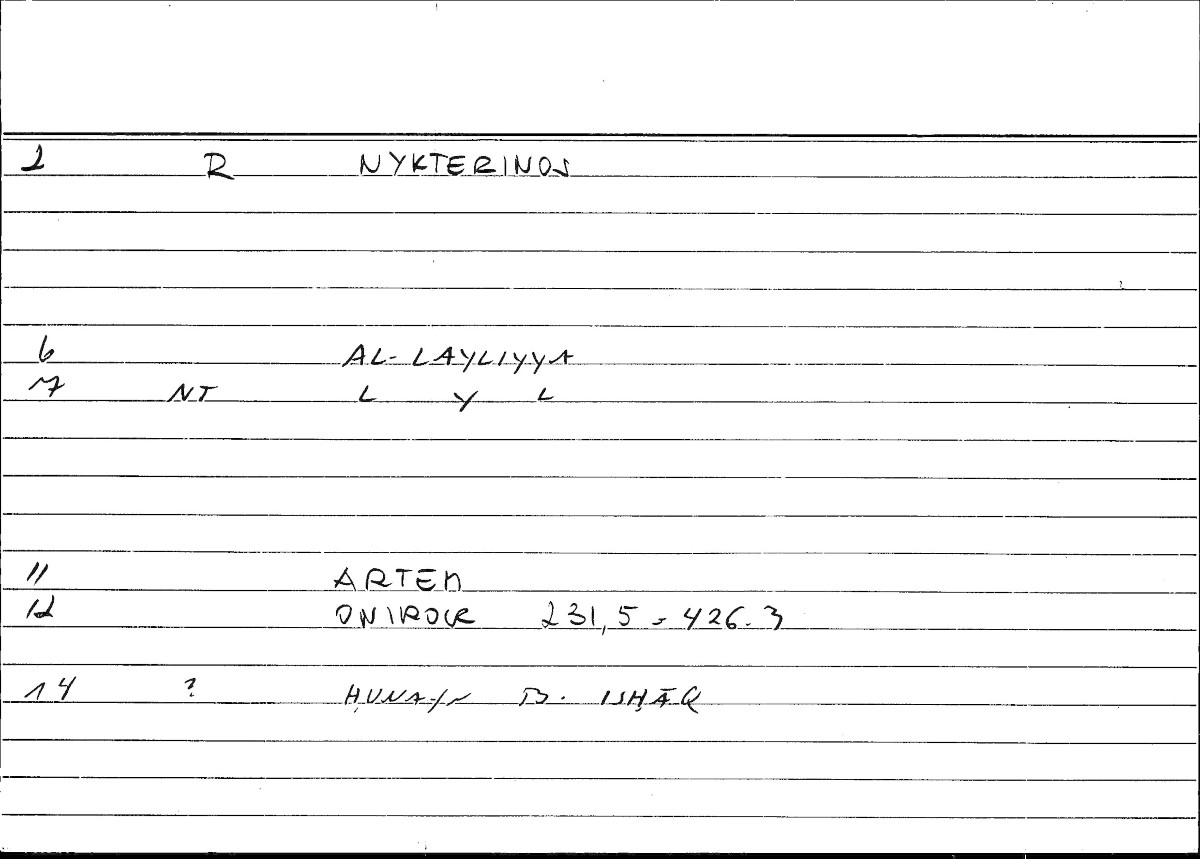 2 R NYKTERINOS
6 AL-LAYLIYYA
7 NT L Y L
11 ARTEM
12 ONIROCR 231,5 = 426.3
14 ? ḤUNAYN B. ISḤĀQ